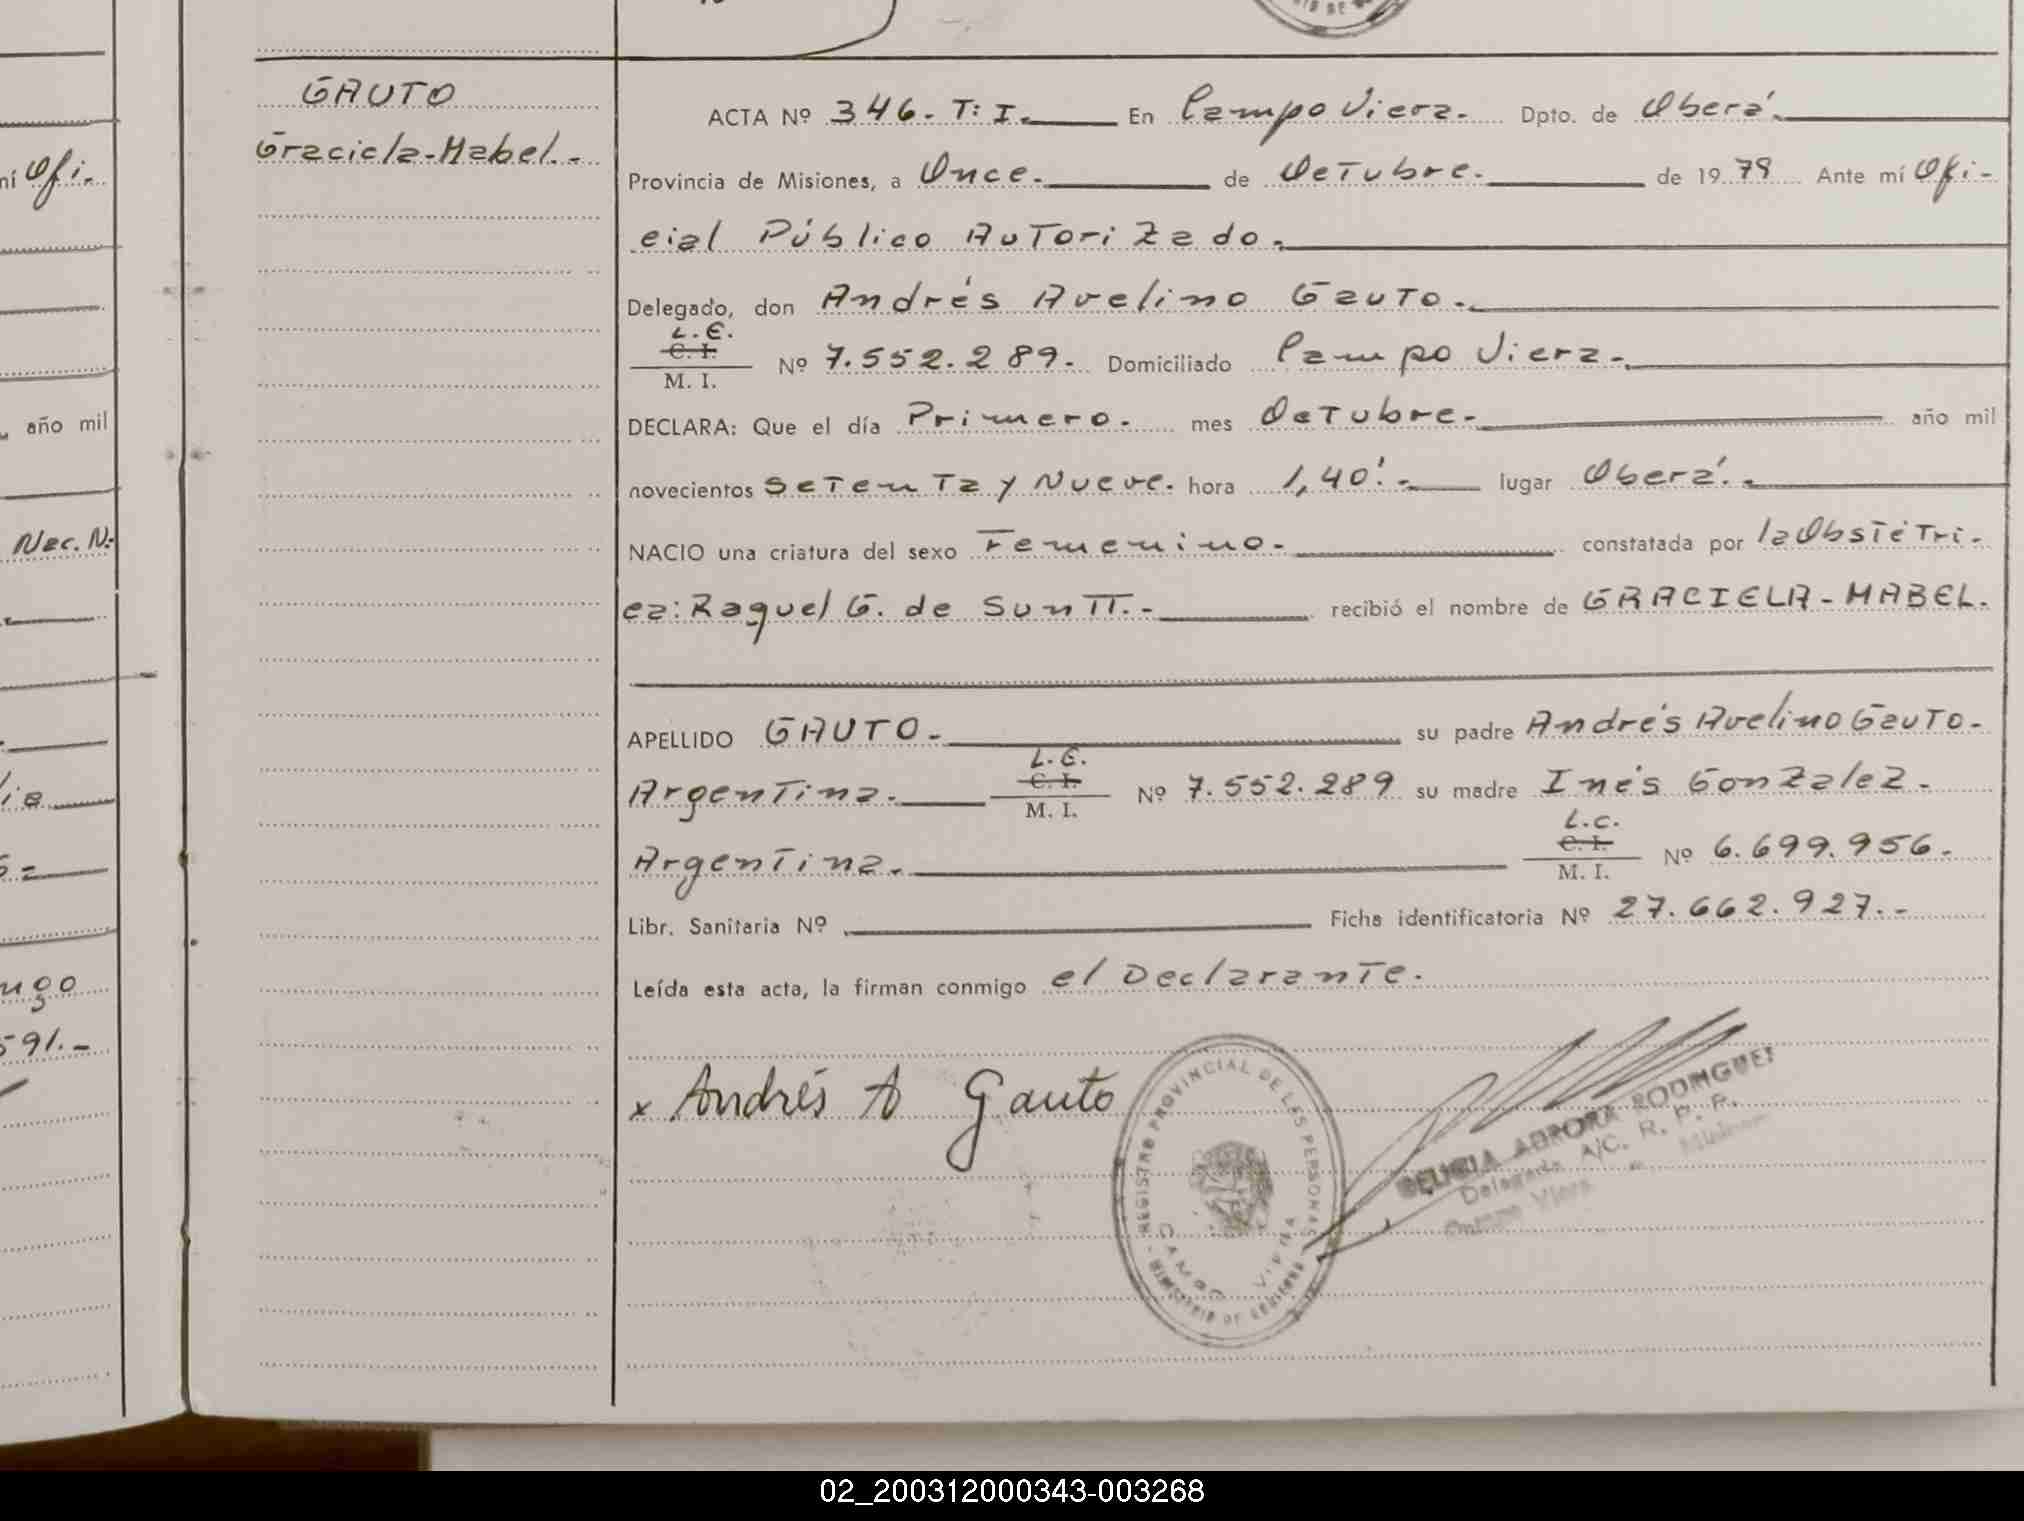 GAUTO
Graciela-Mabel.-
ACTA Nº 346.-T:I. En Campo Viera. Dpto. de Oberá.
Provincia de Misiones, a Once. de Octubre. de 1979 Ante mí Ofi-
cial Público Autorizado.
Delegado, don Andrés Avelino Gauto.
L.E.
C. I.
M. I.
Nº 7.552.289. Domiciliado Campo Viera.
DECLARA: Que el día Primero. mes Octubre. año mil
novecientos Setenta y Nueve. hora 1,40'.- lugar Oberá.-
NACIO una criatura del sexo Femenino. constatada por la Obstétri-
ca: Raquel G. de Sunтт.- recibió el nombre de GRACIELA-MABEL.
APELLIDO GAUTO. su padre Andrés Avelino Gauto.
L.E.
C. I.
M. I.
Argentina. Nº 7.552.289 su madre Inés Gonzalez.
L.C.
C. I.
M. I.
Argentina. Nº 6.699.956.
Libr. Sanitaria Nº Ficha identificatoria Nº 27.662.927.-
Leída esta acta, la firman conmigo el Declarante.
x Andrés A Gauto
REGISTRO PROVINCIAL DE LAS PERSONAS
CAMPO VIERA
MINISTERIO DE GOBIERNO
AURORA RODRIGUEZ
Delegada A/C. R. P. P.
Campo Viera Misiones
mí Ofi.
año mil
Nac. N.
ngo
591.-
02_200312000343-003268